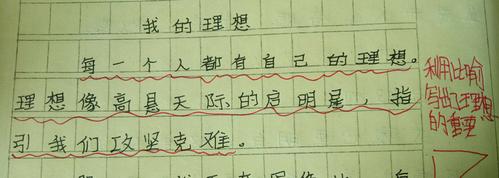 我的理想
每一个人都有自己的理想。
理想像高悬天际的启明星,指
引我们攻坚克难。
利用比喻
写出了理想
的重要